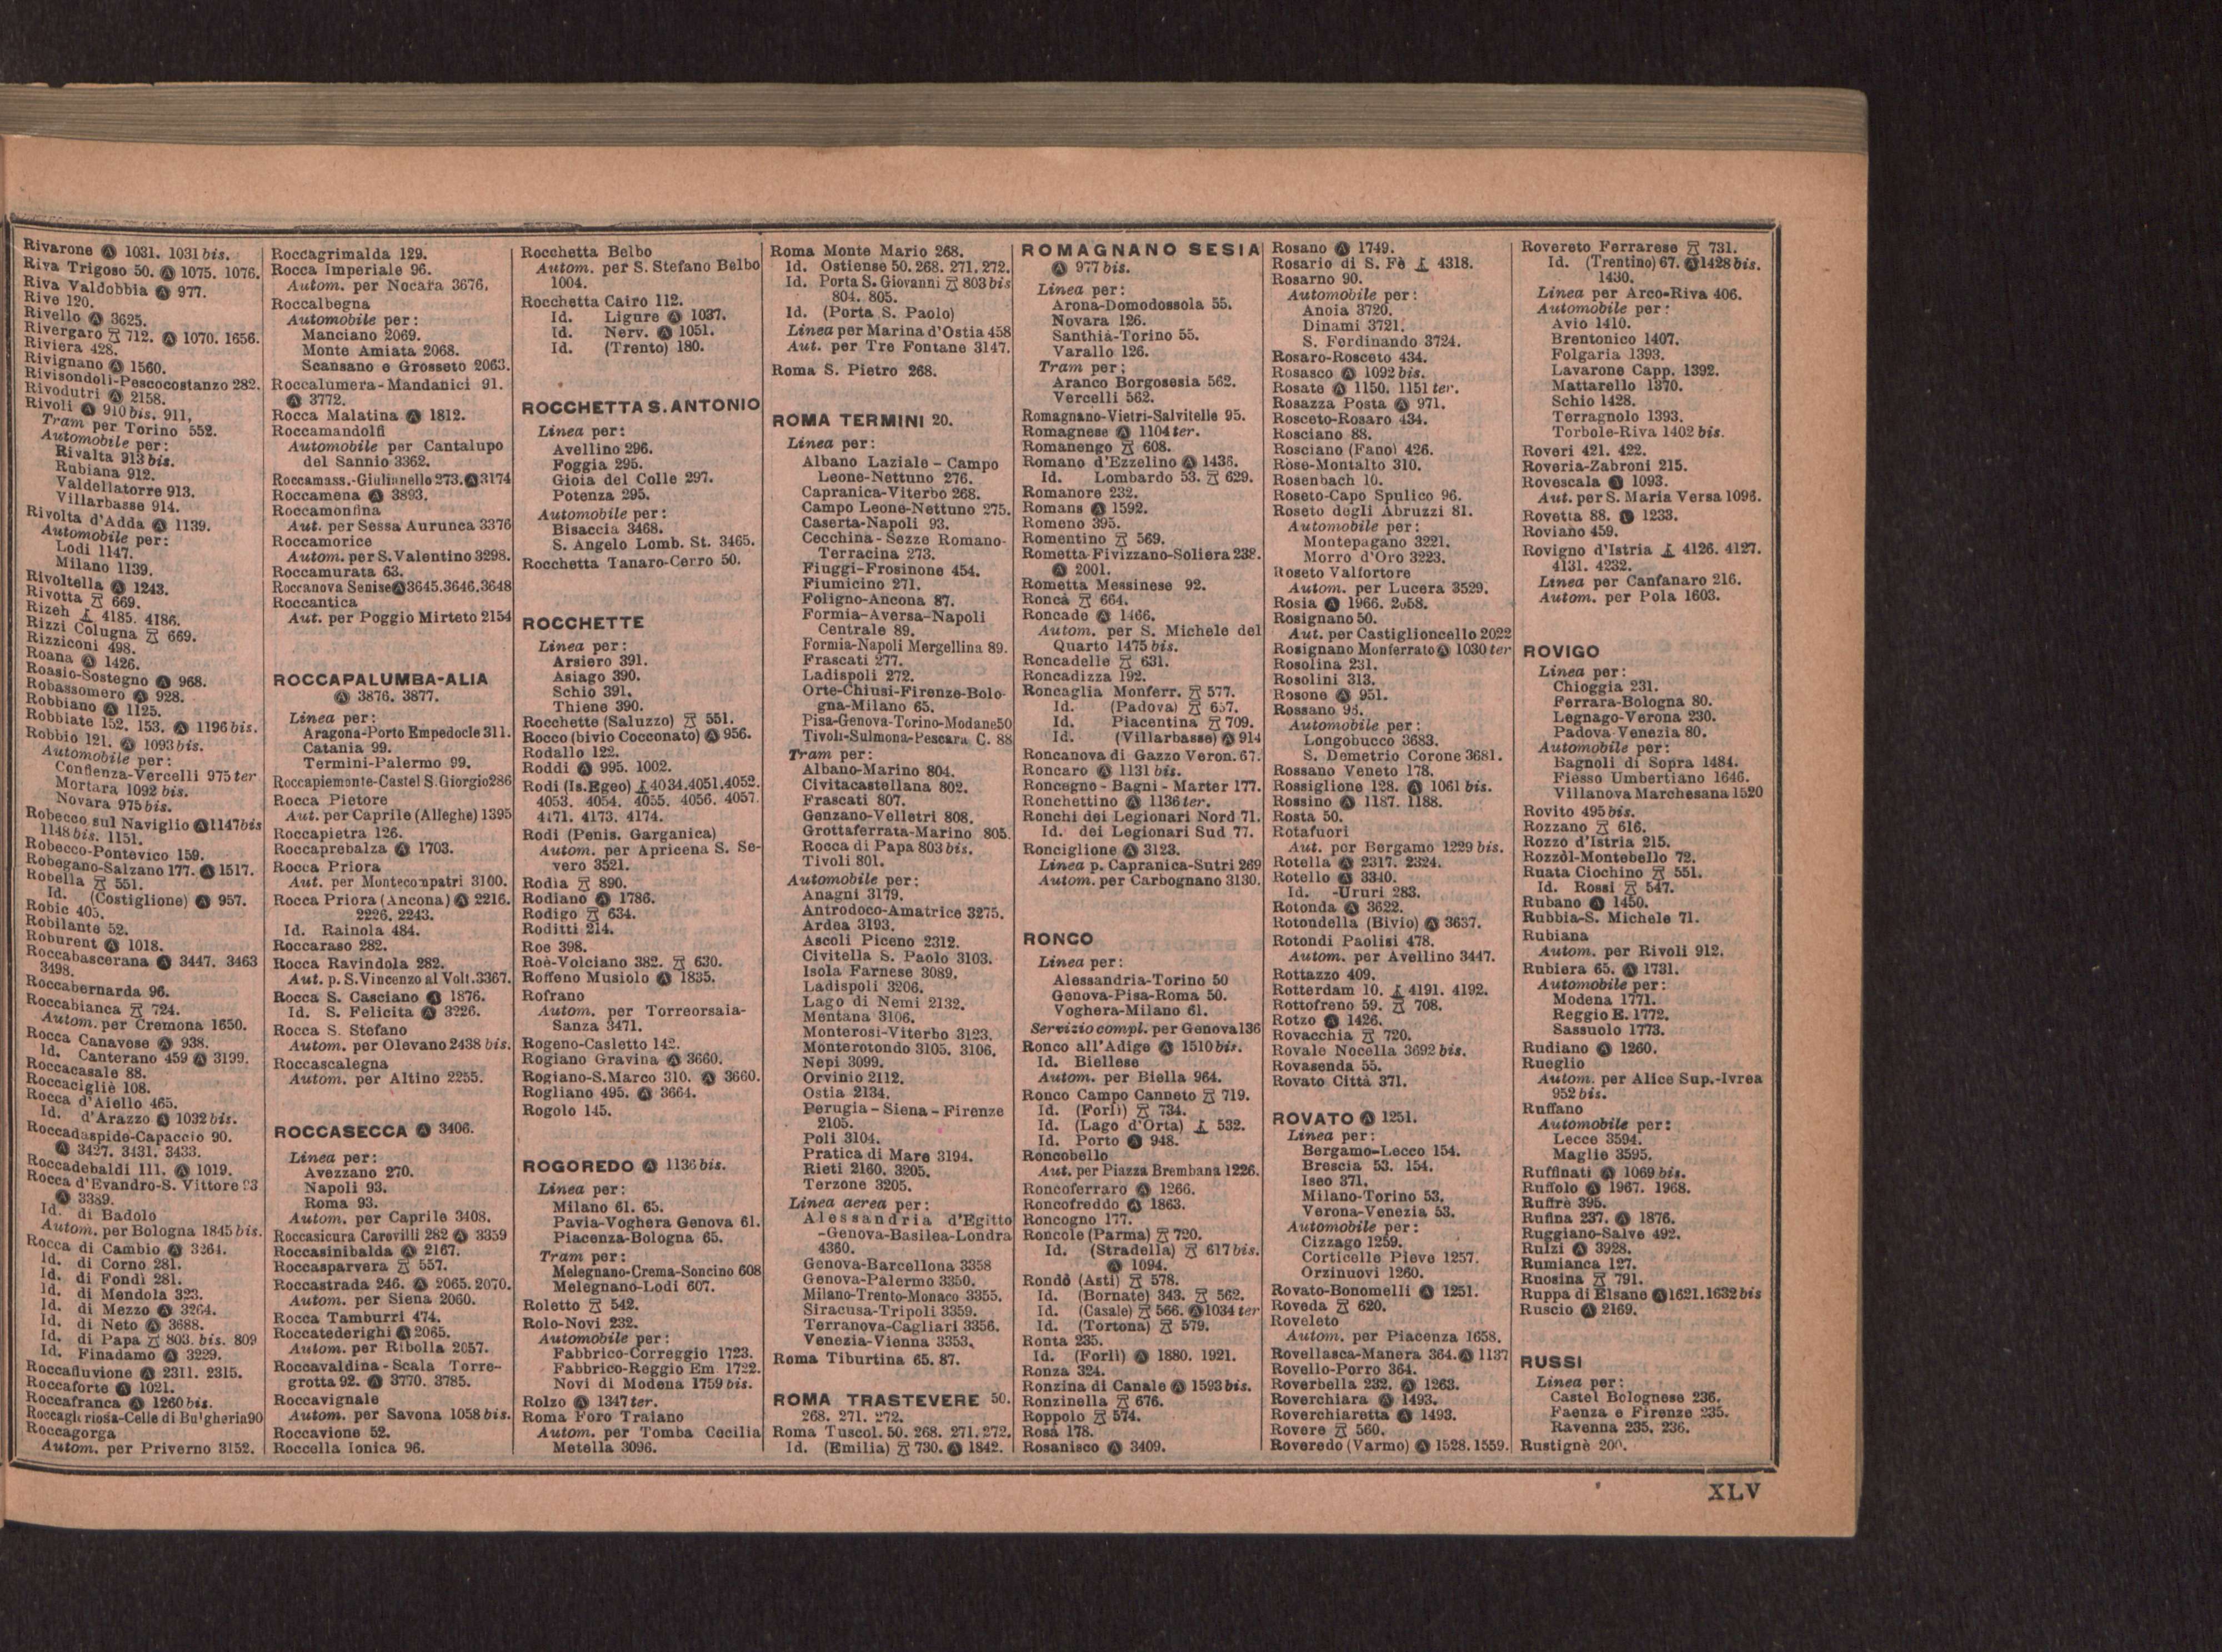 Rivarone Ⓐ 1031. 1031 bis.
Riva Trigoso 50. Ⓐ 1075. 1076.
Riva Valdobbia Ⓐ 977.
Rive 120.
Rivello Ⓐ 3625.
Rivergaro 712. Ⓐ 1070. 1656.
Riviera 428.
Rivignano Ⓐ 1560.
Rivisondoli-Pescocostanzo 282.
Rivodutri Ⓐ 2158.
Rivoli Ⓐ 910 bis. 911.
Tram per Torino 552.
Automobile per:
Rivalta 913 bis.
Rubiana 912.
Valdellatorre 913.
Villarbasse 914.
Rivolta d'Adda Ⓐ 1139.
Automobile per:
Lodi 1147.
Milano 1139.
Rivoltella Ⓐ 1243.
Rivotta 669.
Rizeh 4185. 4186.
Rizzi Colugna 669.
Rizziconi 498.
Roana Ⓐ 1426.
Roasio-Sostegno Ⓐ 968.
Robassomero Ⓐ 928.
Robbiano Ⓐ 1125.
Robbiate 152. 153. Ⓐ 1196 bis.
Robbio 121. Ⓐ 1093 bis.
Automobile per:
Confienza-Vercelli 975 ter
Mortara 1092 bis.
Novara 975 bis.
Robecco sul Naviglio Ⓐ 1147 bis
1148 bis. 1151.
Robecco-Pontevico 159.
Robegano-Salzano 177. Ⓐ 1517.
Robella 551.
Id. (Costiglione) Ⓐ 957.
Robic 405.
Robilante 52.
Roburent Ⓐ 1018.
Roccabascerana Ⓐ 3447. 3463
3498.
Roccabernarda 96.
Roccabianca 724.
Autom. per Cremona 1650.
Rocca Canavese Ⓐ 938.
Id. Canterano 459 Ⓐ 3199.
Roccacasale 88.
Roccacigliè 108.
Rocca d'Aiello 465.
Id. d'Arazzo Ⓐ 1032 bis.
Roccadaspide-Capaccio 90.
Ⓐ 3427. 3431. 3433.
Roccadebaldi 111. Ⓐ 1019.
Rocca d'Evandro-S. Vittore 93
Ⓐ 3389.
Id. di Badolo
Autom. per Bologna 1845 bis.
Rocca di Cambio Ⓐ 3264.
Id. di Corno 281.
Id. di Fondi 281.
Id. di Mendola 323.
Id. di Mezzo Ⓐ 3264.
Id. di Neto Ⓐ 3688.
Id. di Papa 803. bis. 809
Id. Finadamo Ⓐ 3229.
Roccafluvione Ⓐ 2311. 2315.
Roccaforte Ⓐ 1021.
Roccafranca Ⓐ 1260 bis.
Roccagloriosa-Celle di Bulgheria 90
Roccagorga
Autom. per Priverno 3152.
Roccagrimalda 129.
Rocca Imperiale 96.
Autom. per Nocara 3676.
Roccalbegna
Automobile per:
Manciano 2069.
Monte Amiata 2068.
Scansano e Grosseto 2063.
Roccalumera-Mandanici 91.
Ⓐ 3772.
Rocca Malatina Ⓐ 1812.
Roccamandolfi
Automobile per Cantalupo
del Sannio 3362.
Roccamass.-Giulianello 273. Ⓐ 3174
Roccamena Ⓐ 3893.
Roccamonfina
Aut. per Sessa Aurunca 3376
Roccamorice
Autom. per S. Valentino 3298.
Roccamurata 63.
Roccanova Senise Ⓐ 3645.3646.3648
Roccantica
Aut. per Poggio Mirteto 2154
ROCCAPALUMBA-ALIA
Ⓐ 3876. 3877.
Linea per:
Aragona-Porto Empedocle 311.
Catania 99.
Termini-Palermo 99.
Roccapiemonte-Castel S. Giorgio 286
Rocca Pietore
Aut. per Caprile (Alleghe) 1395
Roccapietra 126.
Roccaprebalza Ⓐ 1703.
Rocca Priora
Aut. per Montecompatri 3100.
Rocca Priora (Ancona) Ⓐ 2216.
2226. 2243.
Id. Rainola 484.
Roccaraso 282.
Rocca Ravindola 282.
Aut. p. S. Vincenzo al Volt. 3367.
Rocca S. Casciano Ⓐ 1876.
Id. S. Felicita Ⓐ 3226.
Rocca S. Stefano
Autom. per Olevano 2438 bis.
Roccascalegna
Autom. per Altino 2255.
ROCCASECCA Ⓐ 3406.
Linea per:
Avezzano 270.
Napoli 93.
Roma 93.
Autom. per Caprile 3408.
Roccasicura Carovilli 282 Ⓐ 3359
Roccasinibalda Ⓐ 2167.
Roccasparvera 557.
Roccastrada 246. Ⓐ 2065. 2070.
Autom. per Siena 2060.
Rocca Tamburri 474.
Roccatederighi Ⓐ 2065.
Autom. per Ribolla 2057.
Roccavaldina-Scala Torre-
grotta 92. Ⓐ 3770. 3785.
Roccavignale
Autom. per Savona 1058 bis.
Roccavione 52.
Roccella Ionica 96.
Rocchetta Belbo
Autom. per S. Stefano Belbo
1004.
Rocchetta Cairo 112.
Id. Ligure Ⓐ 1037.
Id. Nerv. Ⓐ 1051.
Id. (Trento) 180.
ROCCHETTA S. ANTONIO
Linea per:
Avellino 296.
Foggia 295.
Gioia del Colle 297.
Potenza 295.
Automobile per:
Bisaccia 3468.
S. Angelo Lomb. St. 3465.
Rocchetta Tanaro-Cerro 50.
ROCCHETTE
Linea per:
Arsiero 391.
Asiago 390.
Schio 391.
Thiene 390.
Rocchette (Saluzzo) 551.
Rocco (bivio Cocconato) Ⓐ 956.
Rodallo 122.
Roddi Ⓐ 995. 1002.
Rodi (Is. Egeo) 4034.4051.4052.
4053. 4054. 4055. 4056. 4057.
4171. 4173. 4174.
Rodi (Penis. Garganica)
Autom. per Apricena S. Se-
vero 3521.
Rodia 890.
Rodiano Ⓐ 1786.
Rodigo 634.
Roditti 214.
Roe 398.
Roè-Volciano 382. 630.
Roffeno Musiolo Ⓐ 1835.
Rofrano
Autom. per Torreorsaia-
Sanza 3471.
Rogeno-Casletto 142.
Rogiano Gravina Ⓐ 3660.
Rogiano-S. Marco 310. Ⓐ 3660.
Rogliano 495. Ⓐ 3664.
Rogolo 145.
ROGOREDO Ⓐ 1136 bis.
Linea per:
Milano 61. 65.
Pavia-Voghera Genova 61.
Piacenza-Bologna 65.
Tram per:
Melegnano-Crema-Soncino 608
Melegnano-Lodi 607.
Roletto 542.
Rolo-Novi 232.
Automobile per:
Fabbrico-Correggio 1723.
Fabbrico-Reggio Em. 1722.
Novi di Modena 1759 bis.
Rolzo Ⓐ 1347 ter.
Roma Foro Traiano
Autom. per Tomba Cecilia
Metella 3096.
Roma Monte Mario 268.
Id. Ostiense 50. 268. 271. 272.
Id. Porta S. Giovanni 803 bis
804. 805.
Id. (Porta S. Paolo)
Linea per Marina d'Ostia 458
Aut. per Tre Fontane 3147.
Roma S. Pietro 268.
ROMA TERMINI 20.
Linea per:
Albano Laziale - Campo
Leone-Nettuno 276.
Capranica-Viterbo 268.
Campo Leone-Nettuno 275.
Caserta-Napoli 93.
Cecchina-Sezze Romano-
Terracina 273.
Fiuggi-Frosinone 454.
Fiumicino 271.
Foligno-Ancona 87.
Formia-Aversa-Napoli
Centrale 89.
Formia-Napoli Mergellina 89.
Frascati 277.
Ladispoli 272.
Orte-Chiusi-Firenze-Bolo-
gna-Milano 65.
Pisa-Genova-Torino-Modane 50
Tivoli-Sulmona-Pescara C. 88
Tram per:
Albano-Marino 804.
Civitacastellana 802.
Frascati 807.
Genzano-Velletri 808.
Grottaferrata-Marino 805.
Rocca di Papa 803 bis.
Tivoli 801.
Automobile per:
Anagni 3179.
Antrodoco-Amatrice 3275.
Ardea 3193.
Ascoli Piceno 2312.
Civitella S. Paolo 3103.
Isola Farnese 3089.
Ladispoli 3206.
Lago di Nemi 2132.
Mentana 3106.
Monterosi-Viterbo 3123.
Monterotondo 3105. 3106.
Nepi 3099.
Orvinio 2112.
Ostia 2134.
Perugia - Siena - Firenze
2105.
Poli 3104.
Pratica di Mare 3194.
Rieti 2160. 3205.
Terzone 3205.
Linea aerea per:
Alessandria d'Egitto
-Genova-Basilea-Londra
4360.
Genova-Barcellona 3358
Genova-Palermo 3350.
Milano-Trento-Monaco 3355.
Siracusa-Tripoli 3359.
Terranova-Cagliari 3356.
Venezia-Vienna 3353.
Roma Tiburtina 65. 87.
ROMA TRASTEVERE 50.
268. 271. 272.
Roma Tuscol. 50. 268. 271. 272.
Id. (Emilia) 730. Ⓐ 1842.
ROMAGNANO SESIA
Ⓐ 977 bis.
Linea per:
Arona-Domodossola 55.
Novara 126.
Santhià-Torino 55.
Varallo 126.
Tram per:
Aranco Borgosesia 562.
Vercelli 562.
Romagnano-Vietri-Salvitelle 95.
Romagnese Ⓐ 1104 ter.
Romanengo 608.
Romano d'Ezzelino Ⓐ 1436.
Id. Lombardo 53. 629.
Romanore 232.
Romans Ⓐ 1592.
Romeno 395.
Romentino 569.
Rometta Fivizzano-Soliera 238.
Ⓐ 2001.
Rometta Messinese 92.
Roncà 664.
Roncade Ⓐ 1466.
Autom. per S. Michele del
Quarto 1475 bis.
Roncadelle 631.
Roncadizza 192.
Roncaglia Monferr. 577.
Id. (Padova) 657.
Id. Piacentina 709.
Id. (Villarbasse) Ⓐ 914
Roncanova di Gazzo Veron. 67.
Roncaro Ⓐ 1131 bis.
Roncegno - Bagni - Marter 177.
Ronchettino Ⓐ 1136 ter.
Ronchi dei Legionari Nord 71.
Id. dei Legionari Sud 77.
Ronciglione Ⓐ 3123.
Linea p. Capranica-Sutri 269
Autom. per Carbognano 3130.
RONCO
Linea per:
Alessandria-Torino 50
Genova-Pisa-Roma 50.
Voghera-Milano 61.
Servizio compl. per Genova 136
Ronco all'Adige Ⓐ 1510 bis.
Id. Biellese
Autom. per Biella 964.
Ronco Campo Canneto 719.
Id. (Forlì) 734.
Id. (Lago d'Orta) 532.
Id. Porto Ⓐ 948.
Roncobello
Aut. per Piazza Brembana 1226.
Roncoferraro Ⓐ 1266.
Roncofreddo Ⓐ 1863.
Roncogno 177.
Roncole (Parma) 720.
Id. (Stradella) 617 bis.
Ⓐ 1094.
Rondò (Asti) 578.
Id. (Bornate) 343. 562.
Id. (Casale) 566. Ⓐ 1034 ter
Id. (Tortona) 579.
Ronta 235.
Id. (Forlì) Ⓐ 1880. 1921.
Ronza 324.
Ronzina di Canale Ⓐ 1593 bis.
Ronzinella 676.
Roppolo 574.
Rosà 178.
Rosanisco Ⓐ 3409.
Rosano Ⓐ 1749.
Rosario di S. Fè 4318.
Rosarno 90.
Automobile per:
Anoia 3720.
Dinami 3721.
S. Ferdinando 3724.
Rosaro-Rosceto 434.
Rosasco Ⓐ 1092 bis.
Rosate Ⓐ 1150. 1151 ter.
Rosazza Posta Ⓐ 971.
Rosceto-Rosaro 434.
Rosciano 88.
Rosciano (Fano) 426.
Rose-Montalto 310.
Rosenbach 10.
Roseto-Capo Spulico 96.
Roseto degli Abruzzi 81.
Automobile per:
Montepagano 3221.
Morro d'Oro 3223.
Roseto Valfortore
Autom. per Lucera 3529.
Rosia Ⓐ 1966. 2058.
Rosignano 50.
Aut. per Castiglioncello 2022
Rosignano Monferrato Ⓐ 1030 ter
Rosolina 231.
Rosolini 313.
Rosone Ⓐ 951.
Rossano 96.
Automobile per:
Longobucco 3683.
S. Demetrio Corone 3681.
Rossano Veneto 178.
Rossiglione 128. Ⓐ 1061 bis.
Rossino Ⓐ 1187. 1188.
Rosta 50.
Rotafuori
Aut. per Bergamo 1229 bis.
Rotella Ⓐ 2317. 2324.
Rotello Ⓐ 3340.
Id. -Ururi 283.
Rotonda Ⓐ 3622.
Rotondella (Bivio) Ⓐ 3637.
Rotondi Paolisi 478.
Autom. per Avellino 3447.
Rottazzo 409.
Rotterdam 10. 4191. 4192.
Rottofreno 59. 708.
Rotzo Ⓐ 1426.
Rovacchia 720.
Rovale Nocella 3692 bis.
Rovasenda 55.
Rovato Città 371.
ROVATO Ⓐ 1251.
Linea per:
Bergamo-Lecco 154.
Brescia 53. 154.
Iseo 371.
Milano-Torino 53.
Verona-Venezia 53.
Automobile per:
Cizzago 1259.
Corticelle Pieve 1257.
Orzinuovi 1260.
Rovato-Bonomelli Ⓐ 1251.
Roveda 620.
Roveleto
Autom. per Piacenza 1658.
Rovellasca-Manera 364. Ⓐ 1137
Rovello-Porro 364.
Roverbella 232. Ⓐ 1263.
Roverchiara Ⓐ 1493.
Roverchiaretta Ⓐ 1493.
Rovere 560.
Roveredo (Varmo) Ⓐ 1528. 1559.
Rovereto Ferrarese 731.
Id. (Trentino) 67. Ⓐ 1428 bis.
1430.
Linea per Arco-Riva 406.
Automobile per:
Avio 1410.
Brentonico 1407.
Folgaria 1393.
Lavarone Capp. 1392.
Mattarello 1370.
Schio 1428.
Terragnolo 1393.
Torbole-Riva 1402 bis.
Roveri 421. 422.
Roveria-Zabroni 215.
Rovescala Ⓐ 1093.
Aut. per S. Maria Versa 1096.
Rovetta 88. Ⓐ 1233.
Roviano 459.
Rovigno d'Istria 4126. 4127.
4131. 4232.
Linea per Canfanaro 216.
Autom. per Pola 1603.
ROVIGO
Linea per:
Chioggia 231.
Ferrara-Bologna 80.
Legnago-Verona 230.
Padova-Venezia 80.
Automobile per:
Bagnoli di Sopra 1484.
Fiesso Umbertiano 1646.
Villanova Marchesana 1520
Rovito 495 bis.
Rozzano 616.
Rozzo d'Istria 215.
Rozzòl-Montebello 72.
Ruata Ciochino 551.
Id. Rossi 547.
Rubano Ⓐ 1450.
Rubbia-S. Michele 71.
Rubiana
Autom. per Rivoli 912.
Rubiera 65. Ⓐ 1731.
Automobile per:
Modena 1771.
Reggio E. 1772.
Sassuolo 1773.
Rudiano Ⓐ 1260.
Rueglio
Autom. per Alice Sup.-Ivrea
952 bis.
Ruffano
Automobile per:
Lecce 3594.
Maglie 3595.
Ruffinati Ⓐ 1069 bis.
Ruffolo Ⓐ 1967. 1968.
Ruffrè 395.
Rufina 237. Ⓐ 1876.
Ruggiano-Salve 492.
Rulzi Ⓐ 3928.
Rumianca 127.
Ruosina 791.
Ruppa di Elsane Ⓐ 1621. 1632 bis
Ruscio Ⓐ 2169.
RUSSI
Linea per:
Castel Bolognese 236.
Faenza e Firenze 235.
Ravenna 235. 236.
Rustignè 200.
XLV